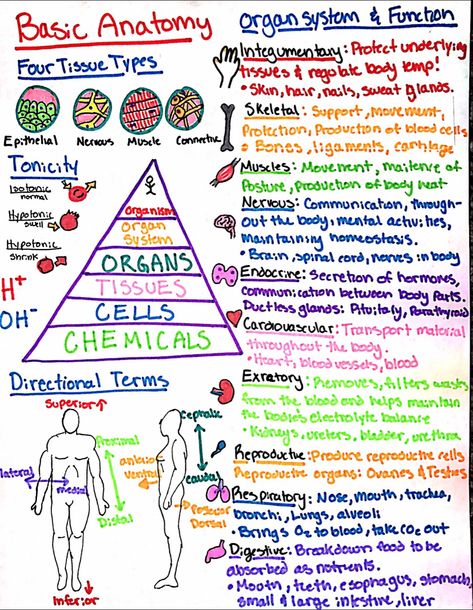 Basic Anatomy
Four Tissue Types
Epithelial
Nervous
Muscle
Connective
Tonicity
Isotonic
normal
Hypotonic
swell
Hypotonic
shrink
H+
OH-
Organism
Organ
System
ORGANS
TISSUES
CELLS
CHEMICALS
Directional Terms
Superior
Proximal
lateral
medial
Distal
Inferior
Cephalic
Ventral
caudal
Dorsal
Organ system & Function
Integumentary: Protect underlying
tissues & regulate body temp!
• Skin, hair, nails, sweat glands.
Skeletal: Support, movement,
Protection, Production of blood cells
• Bones, ligaments, cartilage
Muscles: Movement, maitence of
Posture, production of body heat
Nervous: Communication, through-
out the body, mental activities,
maintaining homeostasis.
• Brain, spinal cord, nerves in body
Endocrine: Secretion of hormones,
communication between body parts.
Ductless glands: Pituitaly, Parathyroid
Cardiovascular: Transport material
throughout the body.
• Heart, blood vessels, blood
Exratory: Removes, filters waste
from the blood and helps maintain
the bodie's electrolyte balance
• Kidneys, ureters, bladder, urethra
Reproductive: Produce reproductive cells
Reproductive organs: Ovaries & Testies
Respiratory: Nose, mouth, trachea,
bronchi, Lungs, alveoli
• Brings O2 to blood, take CO2 out
Digestive: Breakdown food to be
absorbed as nutrients.
• Mouth, teeth, esophagus, stomach,
small & large intestine, liver